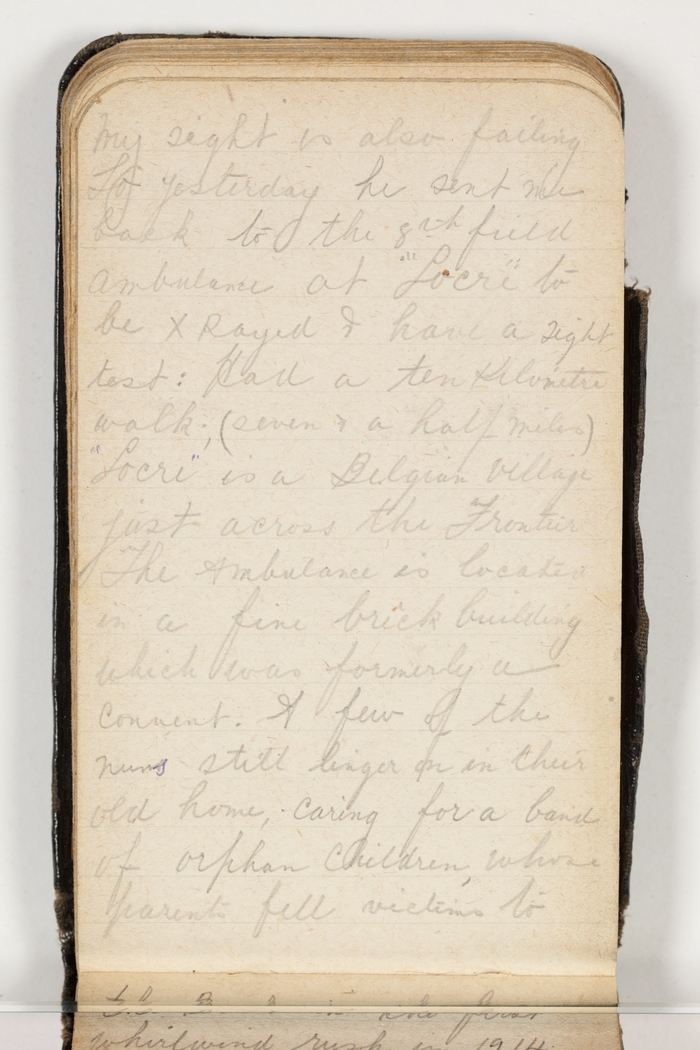 My sight is also failing
So yesterday he sent me
back to the 8th field
ambulance at "Locre" to
be X Rayed & have a sight
test: Had a ten Kilometre
walk; (seven & a half miles)
"Locre" is a Belgian Village
just across the Frontier
The Ambulance is located
in a fine brick building
which was formerly a
Convent. A few of the
nuns still linger on in their
old home, caring for a band
of orphan Children, whose
parents fell victims to
the in the first
whirlwind rush in 1914.